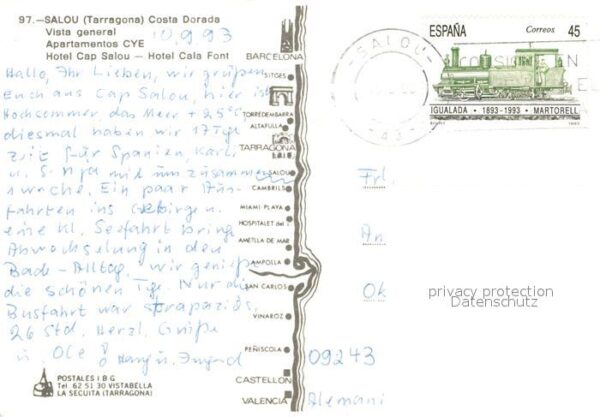 97.—SALOU (Tarragona) Costa Dorada
Vista general
Apartamentos CYE
Hotel Cap Salou — Hotel Cala Font
10.9.93
Hallo, Ihr Lieben, wir grüßen
Euch aus Cap Salou, hier ist
Hochsommer, das Meer + 25°C,
diesmal haben wir 17 Tge
Zeit für Spanien, Karl
u. mit uns zusammen
1 Woche. Ein paar Aus-
fahrten ins Gebirge u.
eine kl. Seefahrt bring
Abwechselung in den
Bade-Alltag, wir genieße
die schönen Tge. Nur die
Busfahrt war strapaziös,
26 Std. Herzl. Grüße
POSTALES I B G
Tel. 62 51 30 VISTABELLA
LA SECUITA (TARRAGONA)
BARCELONA
SITGES
TORREDEMBARRA
ALTAFULLA
TARRAGONA
SALOU
CAMBRILS
MIAMI PLAYA
HOSPITALET del I
AMETLLA DE MAR
AMPOLLA
SAN CARLOS
VINAROZ
PEÑISCOLA
CASTELLON
VALENCIA
ESPAÑA Correos 45
IGUALADA · 1893-1993 · MARTORELL
SALOU
Frl.
An
Ok
privacy protection
Datenschutz
09243
Alemani